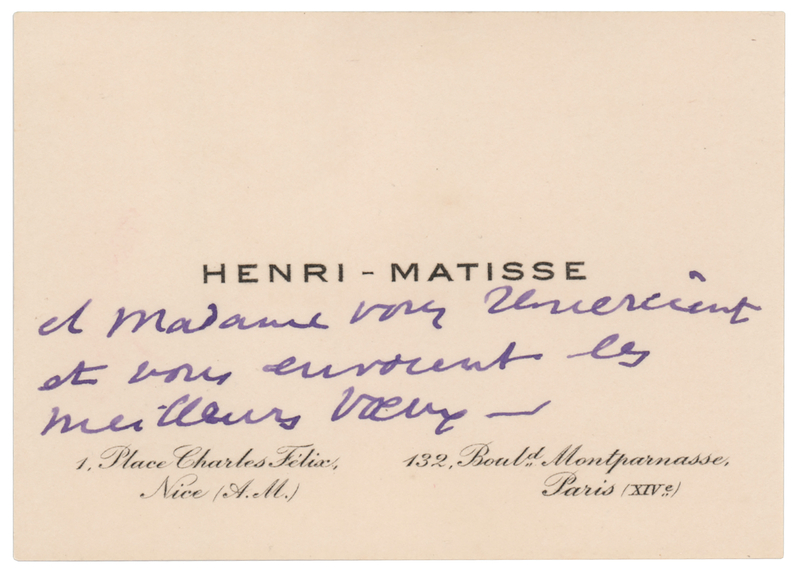 HENRI-MATISSE
et Madame vous remercient
et vous envoient les
meilleurs vœux —
1, Place Charles Félix,
Nice (A.M.)
132, Bould Montparnasse,
Paris (XIVe)